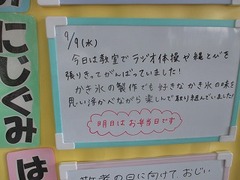 にじぐみ
9/9(水)
今日は教室でラジオ体操や縄とびを
張りきってがんばっていました!
かき氷の製作でも好きなかき氷の味を
思い浮かべながら楽しんで取り組んでいました!
明日はお弁当です
は
敬老の日に向けておじい